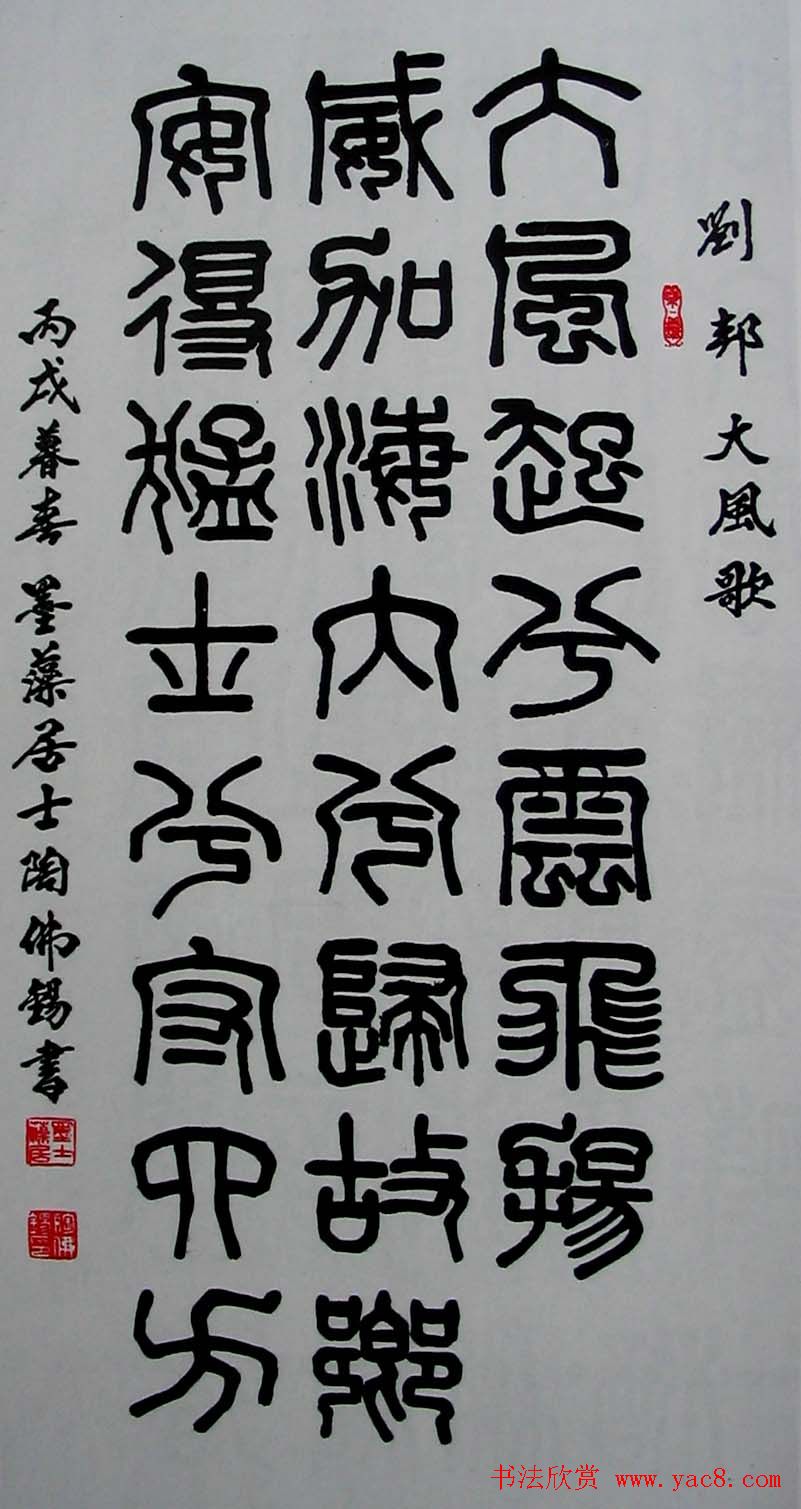 劉邦大風歌
大風起兮雲飛揚
威加海内兮歸故鄉
安得猛士兮守四方
丙戌暮春墨藻居士陶佛錫書
墨士藻居
陶佛錫印
书法欣赏 www.yac8.com